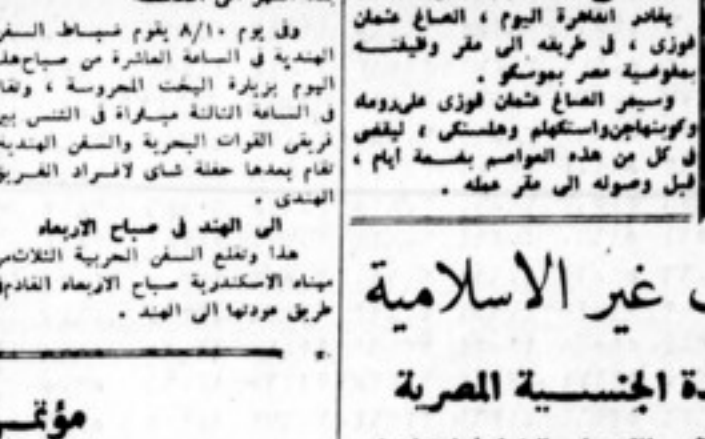 يغادر القاهرة اليوم ، الصاغ عثمان
فوزى ، فى طريقه الى مقر وظيفتــه
بمفوضية مصر بموسكو .
وسيمر الصاغ عثمان فوزى على رومه
وكوبنهاجن واستكهلم وهلسنكى ؛ ليقضى
فى كل من هذه العواصم بضعــة أيام ،
قبل وصوله الى مقر عمله .
غير الاسلامية
الجنســية المصرية
وفى يوم ٨/١٠ يقوم ضبــاط السفن
الهندية فى الساعة العاشرة من صباح هذا
اليوم بزيارة اليخت المحروسة ، وتقام
فى الساعة الثالثة مبــاراة فى التنس بين
فريقى القوات البحرية والسفن الهندية
تقام بعدها حفلة شاى لافــراد الفــريق
الهندى .
الى الهند فى صباح الاربعاء
هذا وتقلع السفن الحربية الثلاث من
ميناء الاسكندرية صباح الاربعاء القادم فى
طريق عودتها الى الهند .